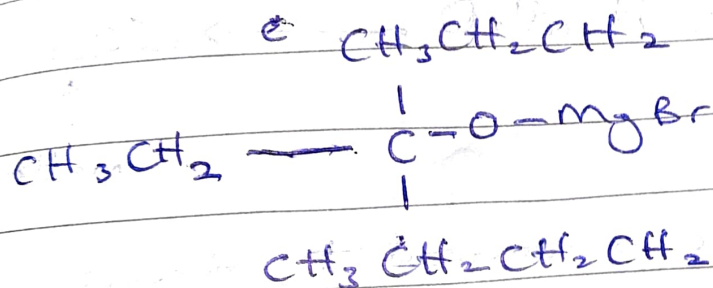 CH₃CH₂CH₂
|
CH₃CH₂ — C-O-MgBr
|
CH₃CH₂CH₂CH₂